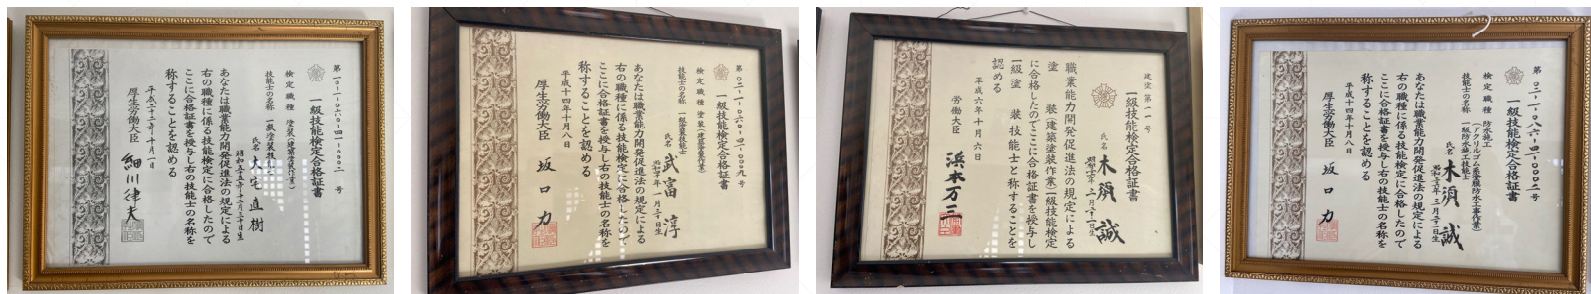 第一〇-一-〇六〇-四一-〇〇〇二号
一級技能検定合格証書
検定職種 塗装(建築塗装作業)
技能士の名称 一級塗装技能士
氏名 大宅直樹
昭和五十五年十二月三十日生
あなたは職業能力開発促進法の規定による
右の職種に係る技能検定に合格したので
ここに合格証書を授与し右の技能士の名称を
称することを認める
平成二十二年十月一日
厚生労働大臣 細川律夫
第〇二-一-〇六〇-四一-〇〇〇九号
一級技能検定合格証書
検定職種 塗装(建築塗装作業)
技能士の名称 一級塗装技能士
氏名 武富淳
あなたは職業能力開発促進法の規定による
右の職種に係る技能検定に合格したので
ここに合格証書を授与し右の技能士の名称を
称することを認める
平成十四年十月八日
厚生労働大臣 坂口力
建塗第一一号
一級技能検定合格証書
氏名 木須誠
職業能力開発促進法の規定による
塗装(建築塗装作業)一級技能検定
に合格したのでここに合格証書を授与し
一級塗装技能士と称することを
認める
平成六年十月六日
労働大臣 浜本万三
第〇二-一-〇八六-四一-〇〇〇二号
一級技能検定合格証書
検定職種 防水施工
(アクリルゴム系塗膜防水工事作業)
技能士の名称 一級防水施工技能士
氏名 木須誠
あなたは職業能力開発促進法の規定による
右の職種に係る技能検定に合格したので
ここに合格証書を授与し右の技能士の名称を
称することを認める
平成十四年十月八日
厚生労働大臣 坂口力